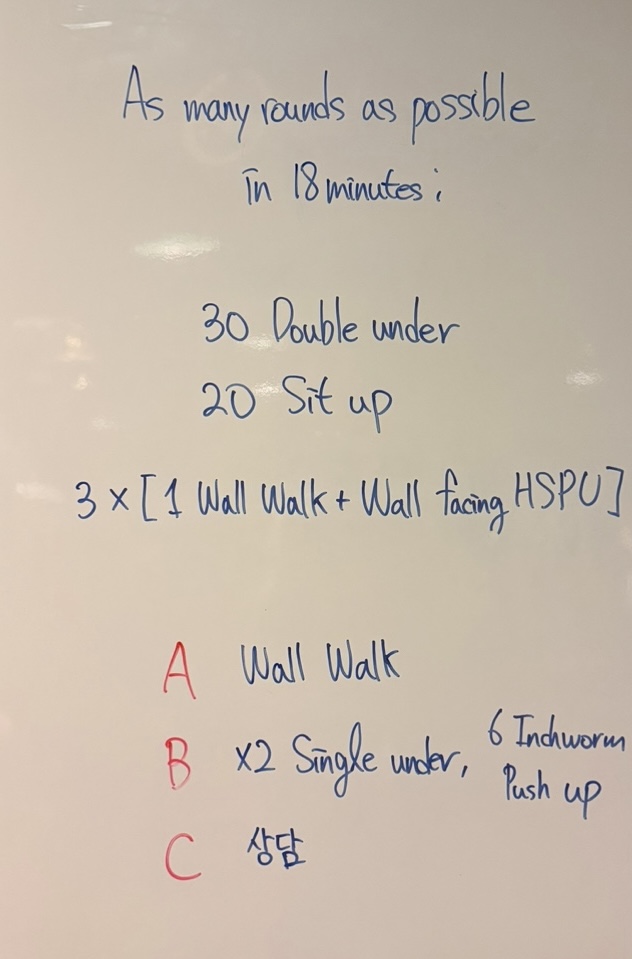 As many rounds as possible
in 18 minutes :
30 Double under
20 Sit up
3 × [1 Wall Walk + Wall facing HSPU]
A Wall Walk
B ×2 Single under, 6 Inchworm
Push up
C 상담